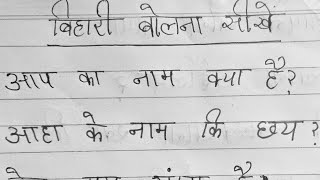 बिहारी बोलना सीखें
आप का नाम क्या है?
आहा के नाम कि छय?